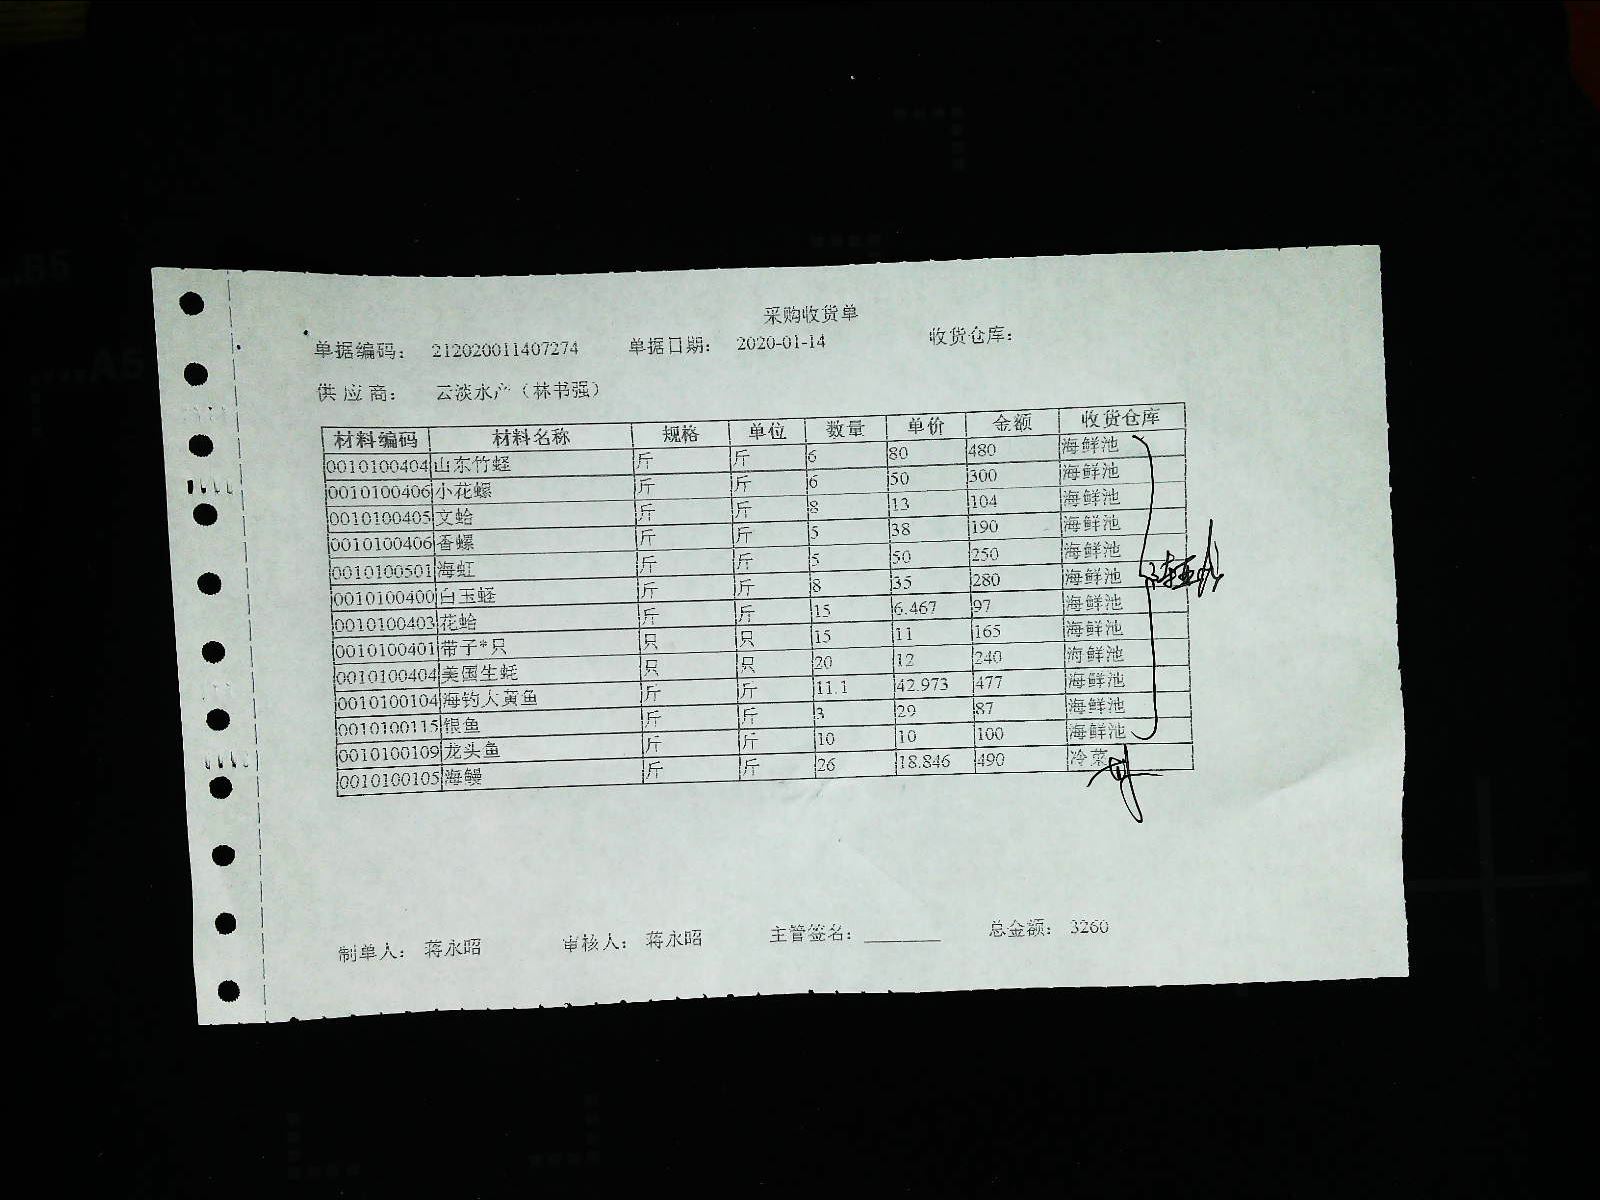 采购收货单
单据编码： 212020011407274 单据日期： 2020-01-14 收货仓库：
供应商： 云淡水产（林书强）
材料编码 材料名称 规格 单位 数量 单价 金额 收货仓库
0010100404 山东竹蛏 斤 斤 6 80 480 海鲜池
0010100406 小花螺 斤 斤 6 50 300 海鲜池
0010100405 文蛤 斤 斤 8 13 104 海鲜池
0010100406 香螺 斤 斤 5 38 190 海鲜池
0010100501 海虹 斤 斤 5 50 250 海鲜池
0010100400 白玉蛏 斤 斤 8 35 280 海鲜池
0010100403 花蛤 斤 斤 15 6.467 97 海鲜池
0010100401 带子*只 只 只 15 11 165 海鲜池
0010100404 美国生蚝 只 只 20 12 240 海鲜池
0010100104 海钓大黄鱼 斤 斤 11.1 42.973 477 海鲜池
0010100115 银鱼 斤 斤 3 29 87 海鲜池
0010100109 龙头鱼 斤 斤 10 10 100 海鲜池
0010100105 海鳗 斤 斤 26 18.846 490 冷菜
制单人： 蒋永昭 审核人： 蒋永昭 主管签名： 总金额： 3260